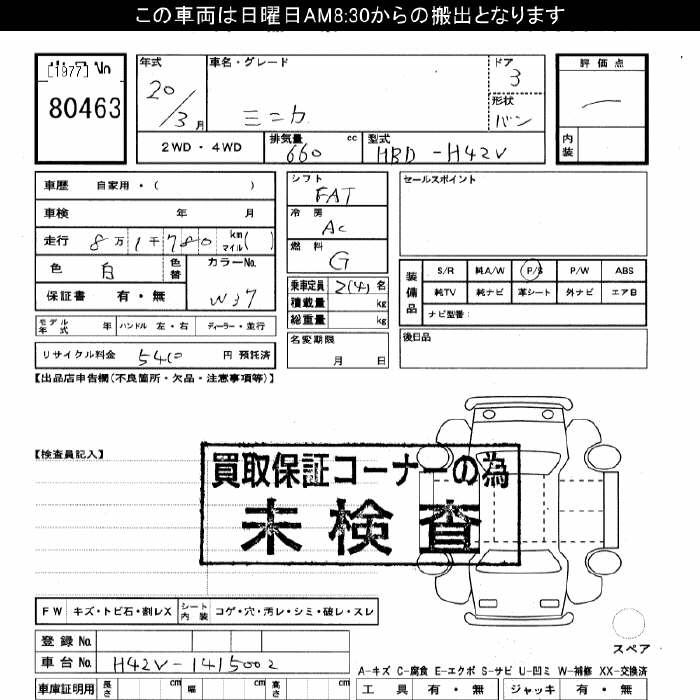 この車両は日曜日AM8:30からの搬出となります
[1977] No
80463
年式 20/3月
車名・グレード ミニカ
ドア 3
形状 バン
評価点
内装
2WD・4WD
排気量 660 cc
型式 HBD-H42V
車歴 自家用・( )
車検 年 月
走行 8万1千780 km マイル( )
色 白 色替
カラーNo. W37
保証書 有・無
モデル年式 年 ハンドル 左・右 ディーラー・並行
リサイクル料金 5410 円 預託済
シフト FAT
冷房 AC
燃料 G
乗車定員 2(4)名
積載量 kg
総重量 kg
名変期限 月 日
セールスポイント
装備品
S/R 純A/W P/S P/W ABS
純TV 純ナビ 革シート 外ナビ エアB
ナビ型番:
後日品
【出品店申告欄(不良箇所・欠品・注意事項等)】
【検査員記入】
買取保証コーナーの為
未検査
FW キズ・トビ石・割レX シート内装 コゲ・穴・汚レ・シミ・破レ・スレ
スペア
登録No.
車台No. H42V-1415002
A-キズ C-腐食 E-エクボ S-サビ U-凹ミ W-補修 XX-交換済
車庫証明用 長さ cm 幅 cm 高さ cm
工具 有・無 ジャッキ 有・無